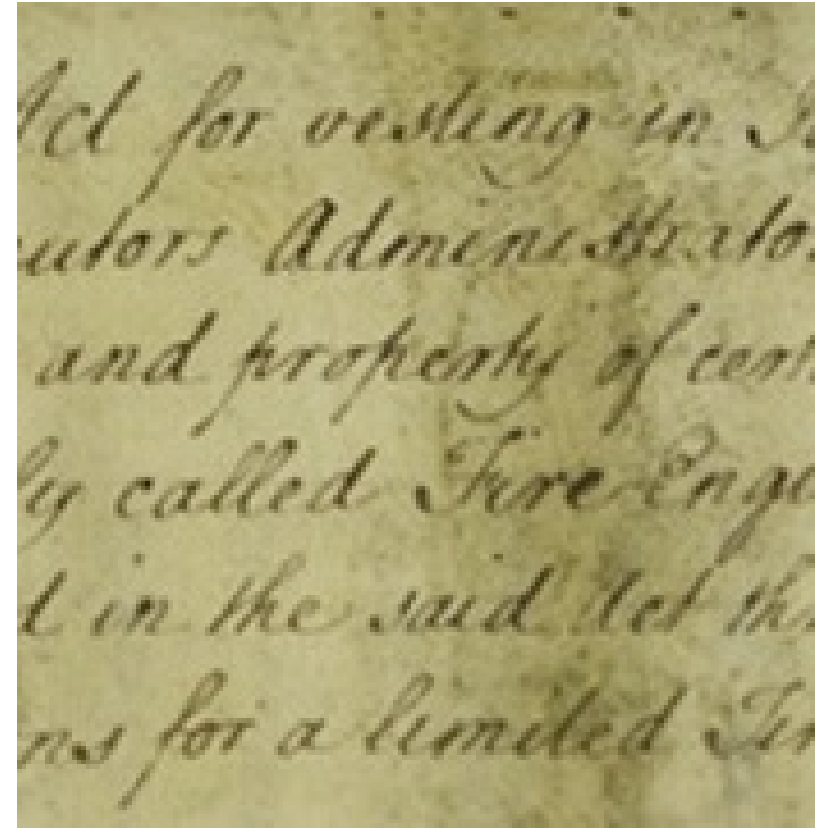 Act for vesting in
cutors Administrato
and property of cert
ly called Fire Engi
d in the said Act th
ns for a limited